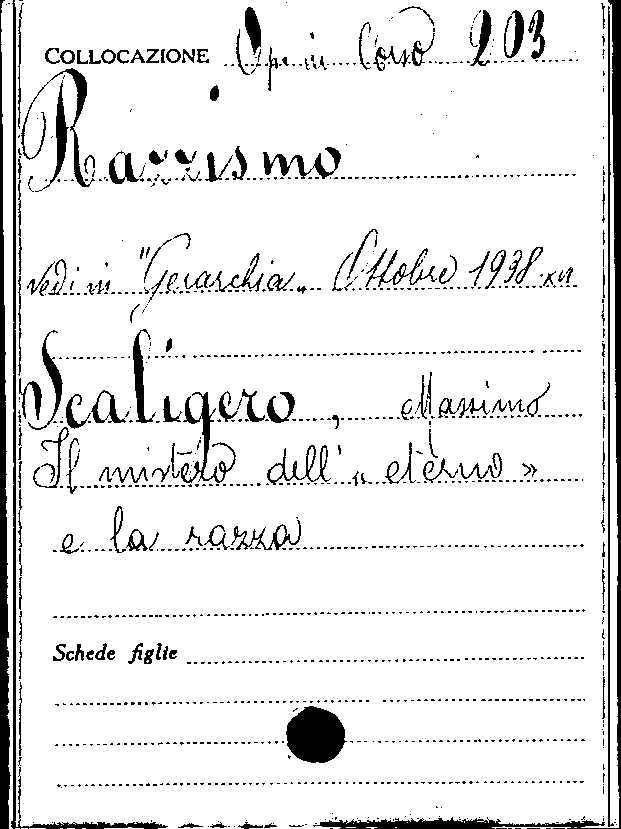 COLLOCAZIONE Op. in Corso 203
Razzismo
vedi in "Gerarchia„ Ottobre 1938-XVI
Scaligero, Massimo
Il mistero dell' « eterno »
e la razza
Schede figlie